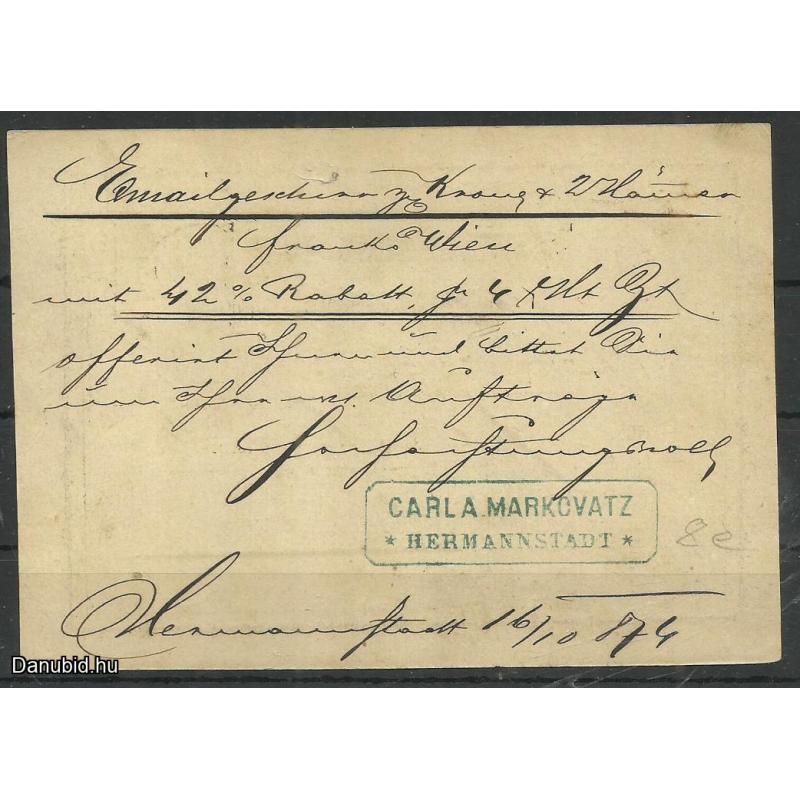 Emailgeschirr Krone & 2 Hämer
franko Wien
mit 42% Rabatt, pr 4 Zt
offerirt Ihnen und bittet Sie
um Ihre Aufträge
Hochachtungsvoll
CARL A. MARKOVATZ
* HERMANNSTADT *
82
Hermannstadt 16/10 874
Danubid.hu